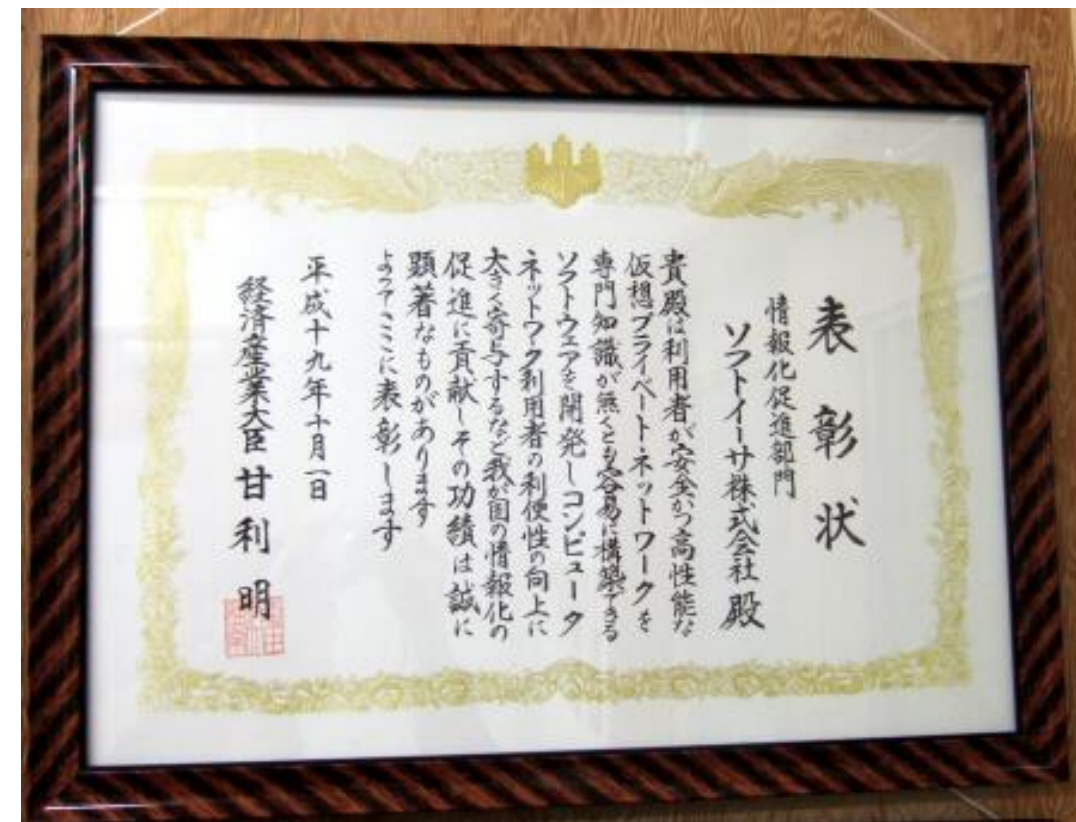 表彰状
情報化促進部門
ソフトイーサ株式会社 殿
貴殿は利用者が安全かつ高性能な
仮想プライベート・ネットワークを
専門知識が無くとも容易に構築できる
ソフトウェアを開発しコンピュータ
ネットワーク利用者の利便性の向上に
大きく寄与するなど我が国の情報化の
促進に貢献しその功績は誠に
顕著なものがあります
よってここに表彰します
平成十九年十月一日
経済産業大臣 甘利 明